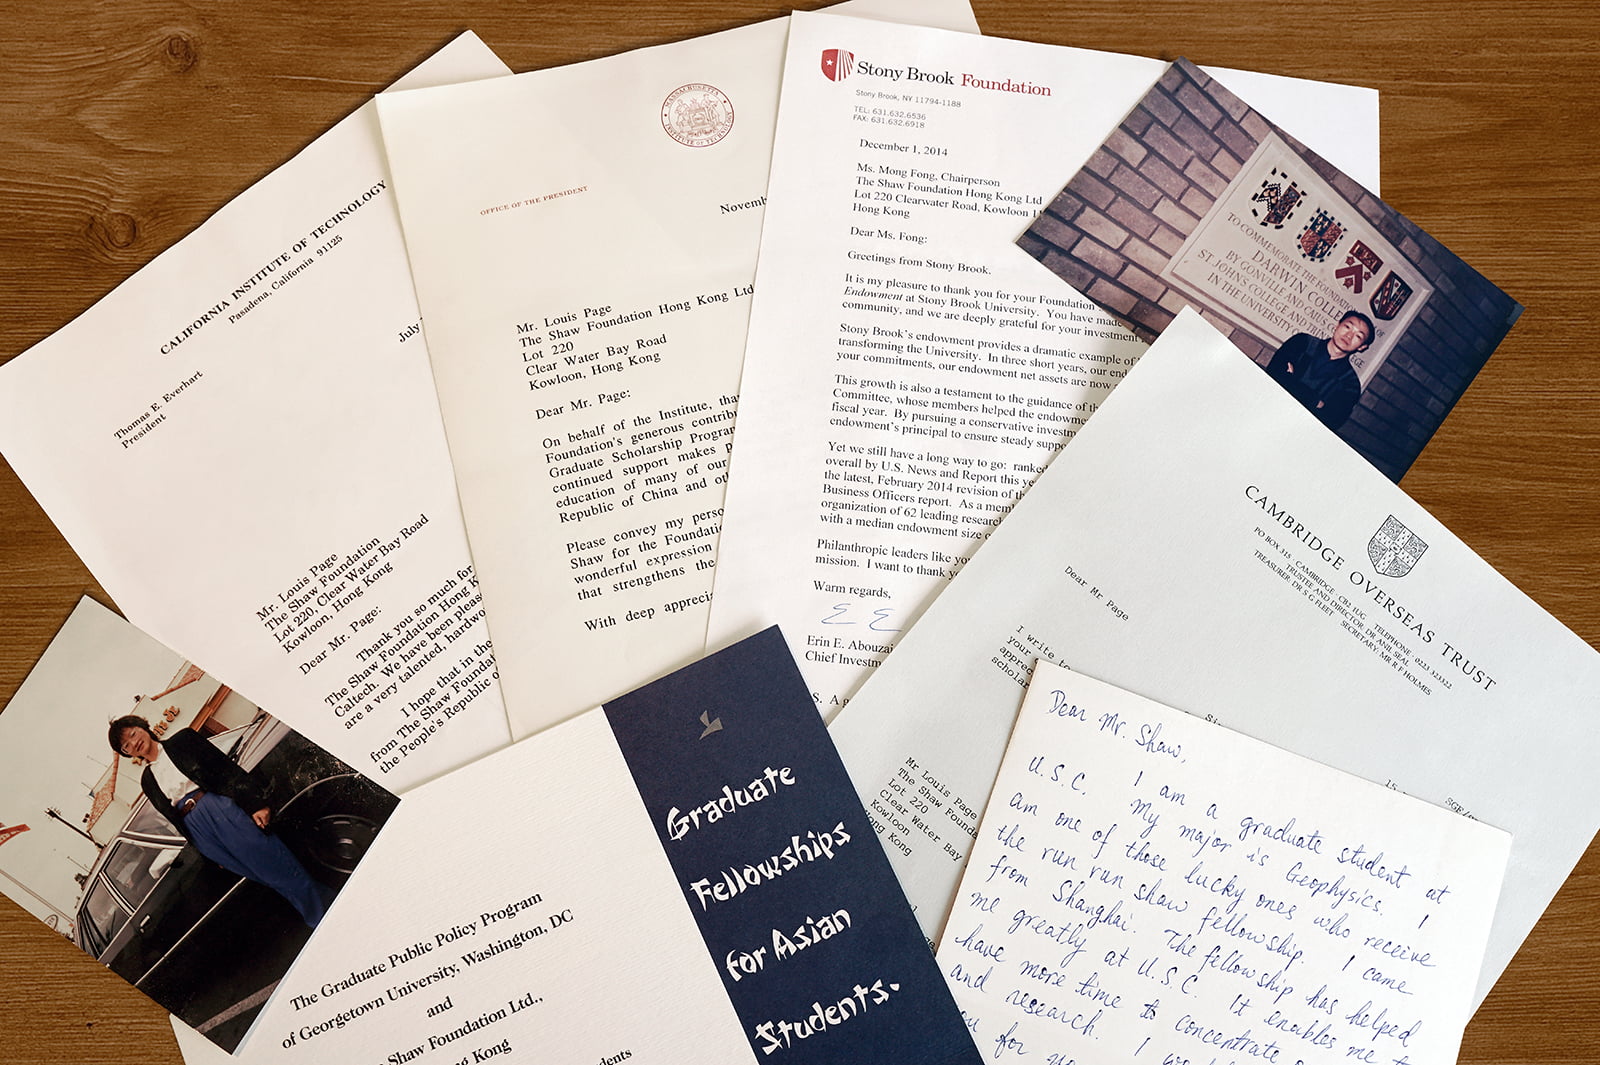 CALIFORNIA INSTITUTE OF TECHNOLOGY
Pasadena, California 91125
July
Thomas E. Everhart
President
Mr. Louis Page
The Shaw Foundation
Lot 220, Clear Water Bay Road
Kowloon, Hong Kong
Dear Mr. Page:
Thank you so much for
The Shaw Foundation Hong K
Caltech. We have been pleas
are a very talented, hardwo
I hope that in the
from The Shaw Foundat
the People's Republic o
MASSACHUSETTS
INSTITUTE OF TECHNOLOGY
OFFICE OF THE PRESIDENT
Novemb
Mr. Louis Page
The Shaw Foundation Hong Kong Ltd
Lot 220
Clear Water Bay Road
Kowloon, Hong Kong
Dear Mr. Page:
On behalf of the Institute, tha
Foundation's generous contrib
Graduate Scholarship Program
continued support makes p
education of many of our
Republic of China and oth
Please convey my perso
Shaw for the Foundatio
wonderful expression
that strengthens the
With deep apprecia
Stony Brook Foundation
Stony Brook, NY 11794-1188
TEL: 631.632.6536
FAX: 631.632.6918
December 1, 2014
Ms. Mong Fong, Chairperson
The Shaw Foundation Hong Kong Ltd
Lot 220 Clearwater Road, Kowloon
Hong Kong
Dear Ms. Fong:
Greetings from Stony Brook.
It is my pleasure to thank you for your Foundation
Endowment at Stony Brook University. You have made
community, and we are deeply grateful for your investment
Stony Brook's endowment provides a dramatic example of
transforming the University. In three short years, our end
your commitments, our endowment net assets are now
This growth is also a testament to the guidance of th
Committee, whose members helped the endowme
fiscal year. By pursuing a conservative investm
endowment's principal to ensure steady suppo
Yet we still have a long way to go: ranked
overall by U.S. News and Report this ye
the latest, February 2014 revision of th
Business Officers report. As a mem
organization of 62 leading researc
with a median endowment size o
Philanthropic leaders like yo
mission. I want to thank yo
Warm regards,
Erin E. Abouzai
Chief Investm
TO COMMEMORATE THE FOUNDATION OF
DARWIN COLLEGE
BY GONVILLE AND CAIUS
ST JOHN'S COLLEGE AND TRIN
IN THE UNIVERSITY
CAMBRIDGE OVERSEAS TRUST
PO BOX 315 CAMBRIDGE CB2 1UG TELEPHONE: 0223 323322
TRUSTEE AND DIRECTOR: DR ANIL SEAL
TREASURER: DR S G FLEET SECRETARY: MR R F HOLMES
Dear Mr Page
I write to
your
appre
scholar
Mr Louis Page
The Shaw Founda
Lot 220
Clear Water Bay
Kowloon
Hong Kong
Dear Mr. Shaw,
I am a graduate student at
U.S.C. My major is Geophysics. I
am one of those lucky ones who receive
the run run shaw fellowship. I came
from Shanghai. The fellowship has helped
me greatly at U.S.C. It enables me t
have more time to concentrate
and research. I
for
Graduate
Fellowships
for Asian
Students.
The Graduate Public Policy Program
of Georgetown University, Washington, DC
and
Shaw Foundation Ltd.,
g Kong